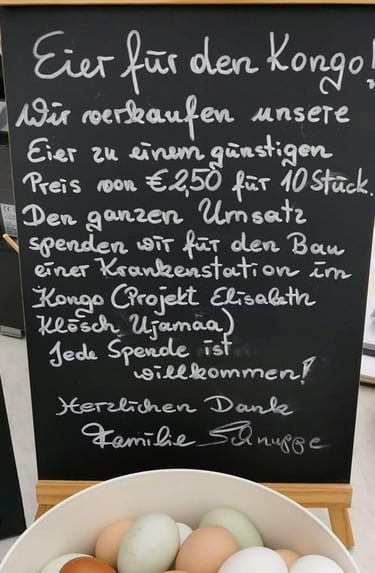 Eier für den Kongo!
Wir verkaufen unsere
Eier zu einem günstigen
Preis von €2,50 für 10 Stück.
Den ganzen Umsatz
spenden wir für den Bau
einer Krankenstation im
Kongo (Projekt Elisabeth
Klösch Ujamaa)
Jede Spende ist
willkommen!
Herzlichen Dank
Familie Schnuppe